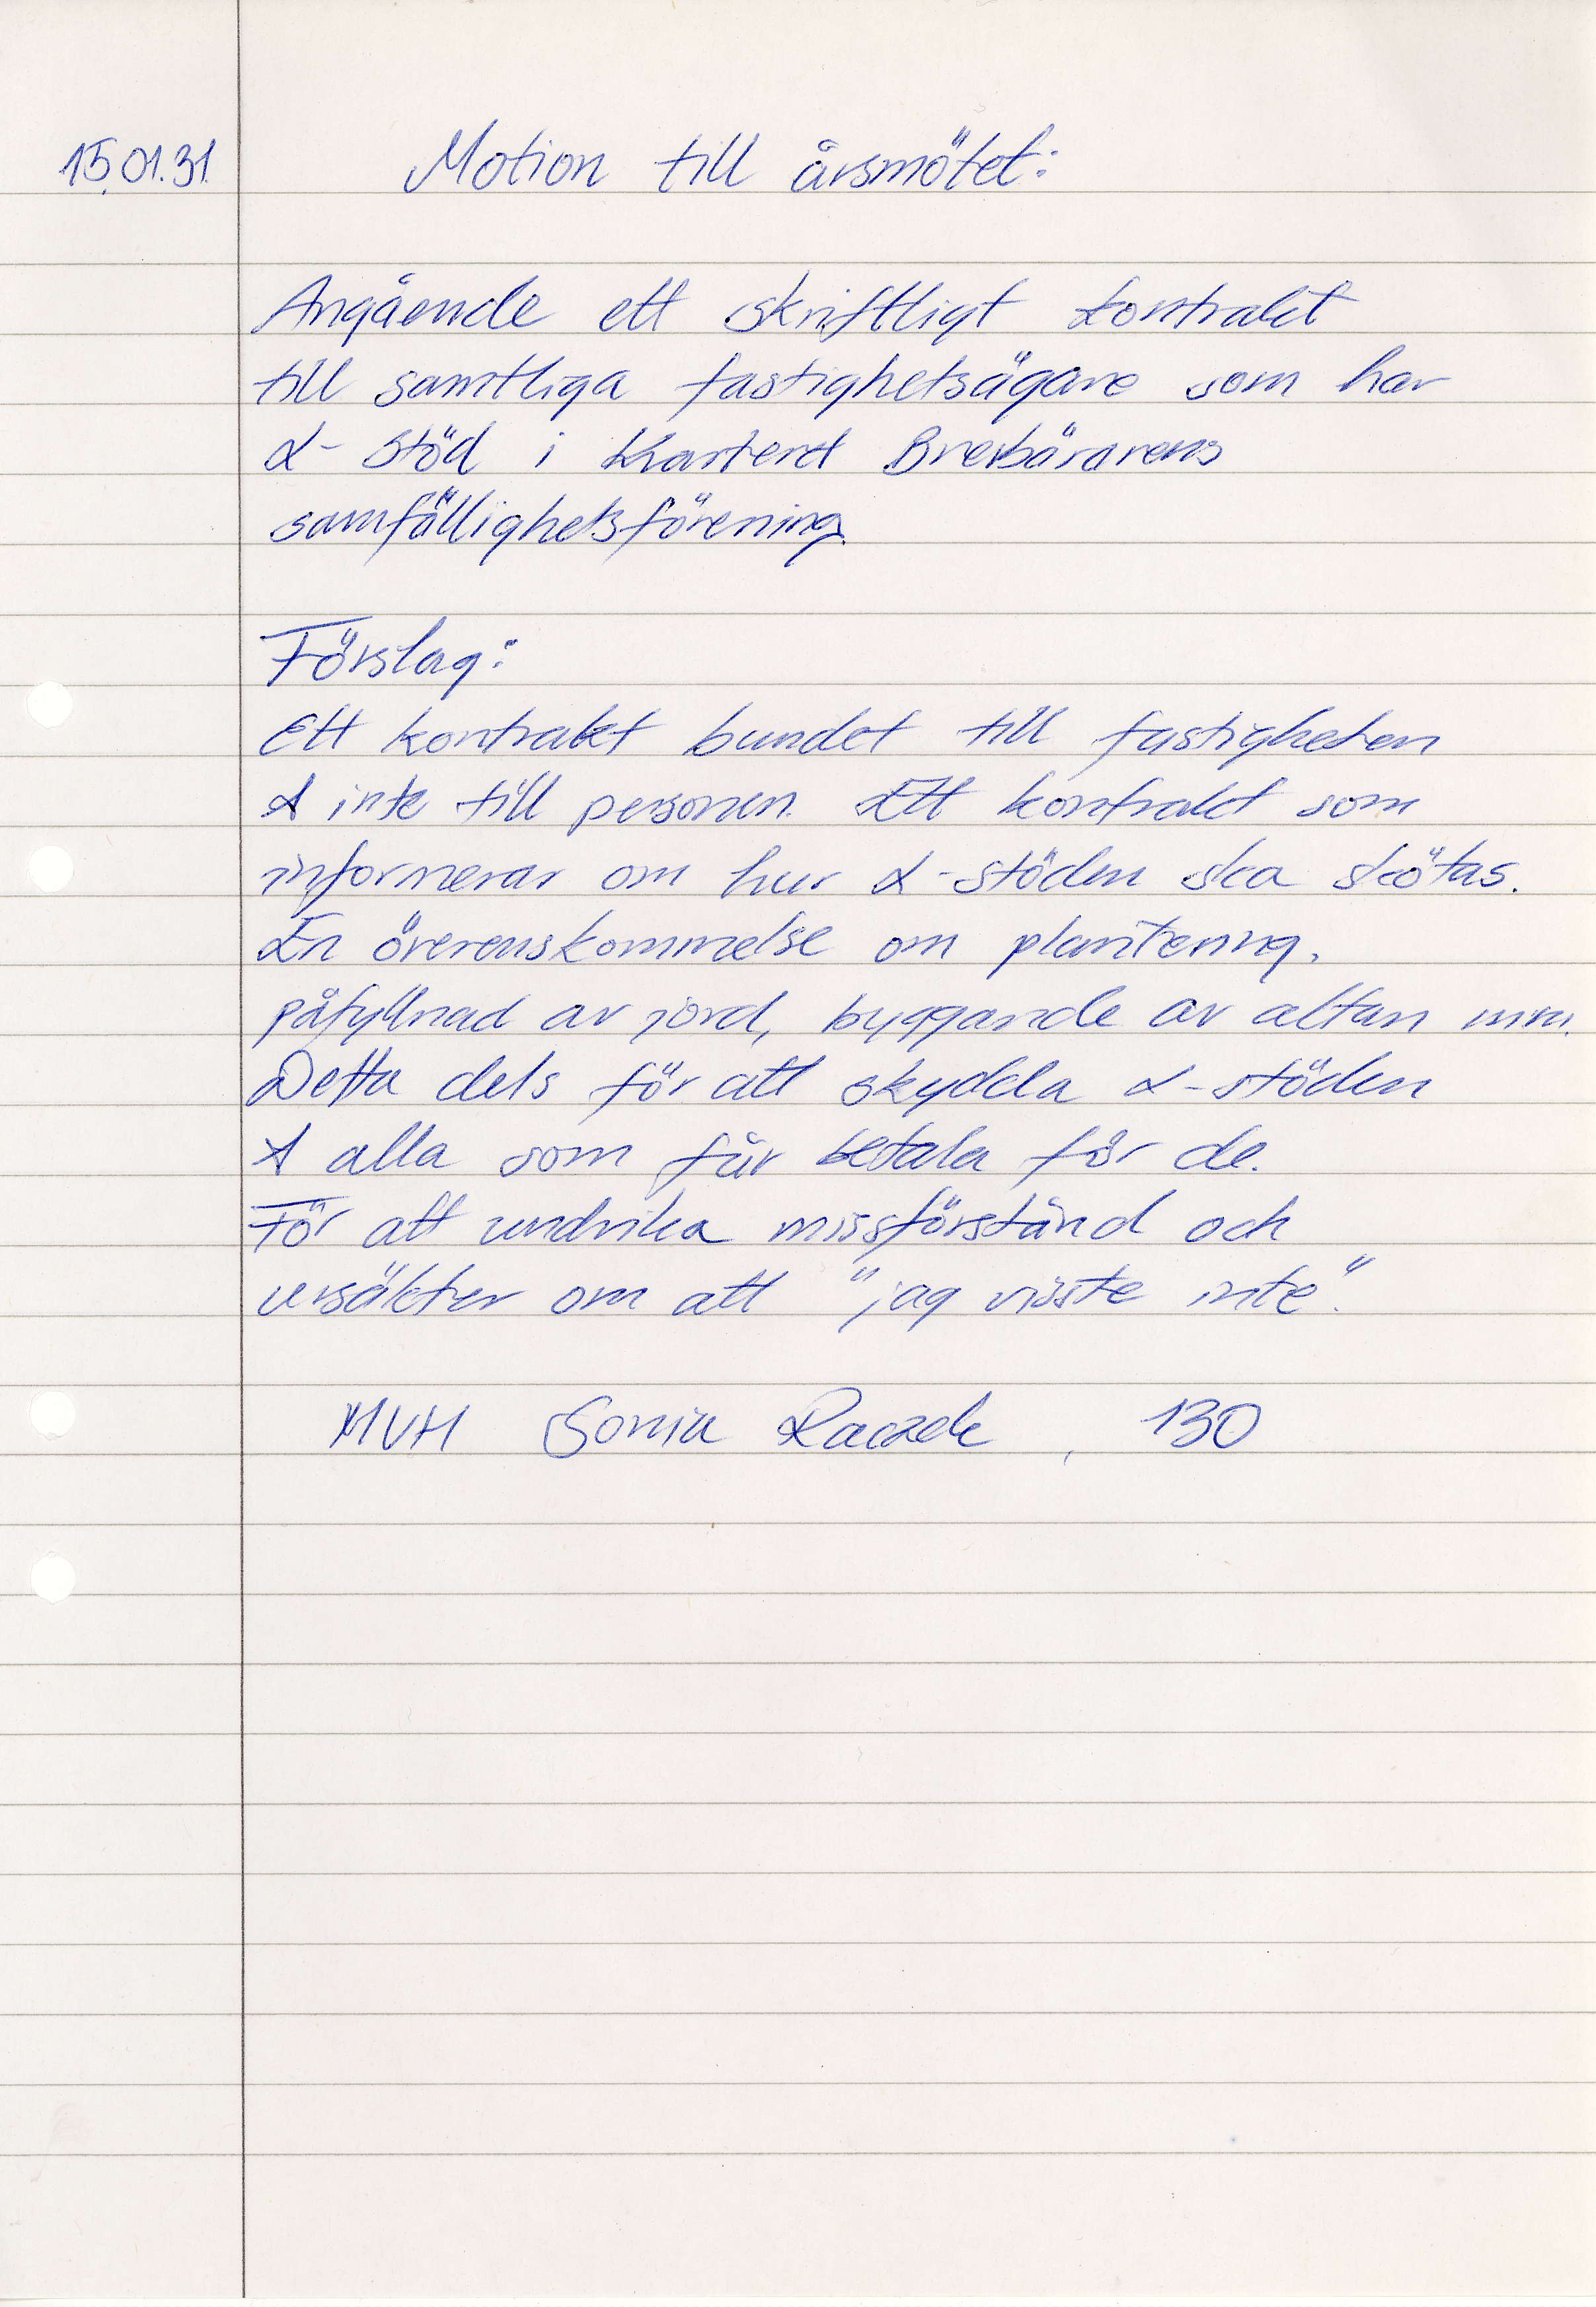 15.01.31 Motion till årsmötet:
Angående ett skriftligt kontrakt
till samtliga fastighetsägare som har
L-stöd i Kvarteret Brevbärarens
samfällighetsförening.
Förslag:
Ett kontrakt bundet till fastigheten
& inte till personen. Ett kontrakt som
informerar om hur L-stöden ska skötas.
En överenskommelse om plantering,
påfyllnad av jord, byggande av altan mm.
Detta dels för att skydda L-stöden
& alla som får betala för de.
För att undvika missförstånd och
ursäkter om att "jag visste inte".
MVH Sonia Raczek, 130